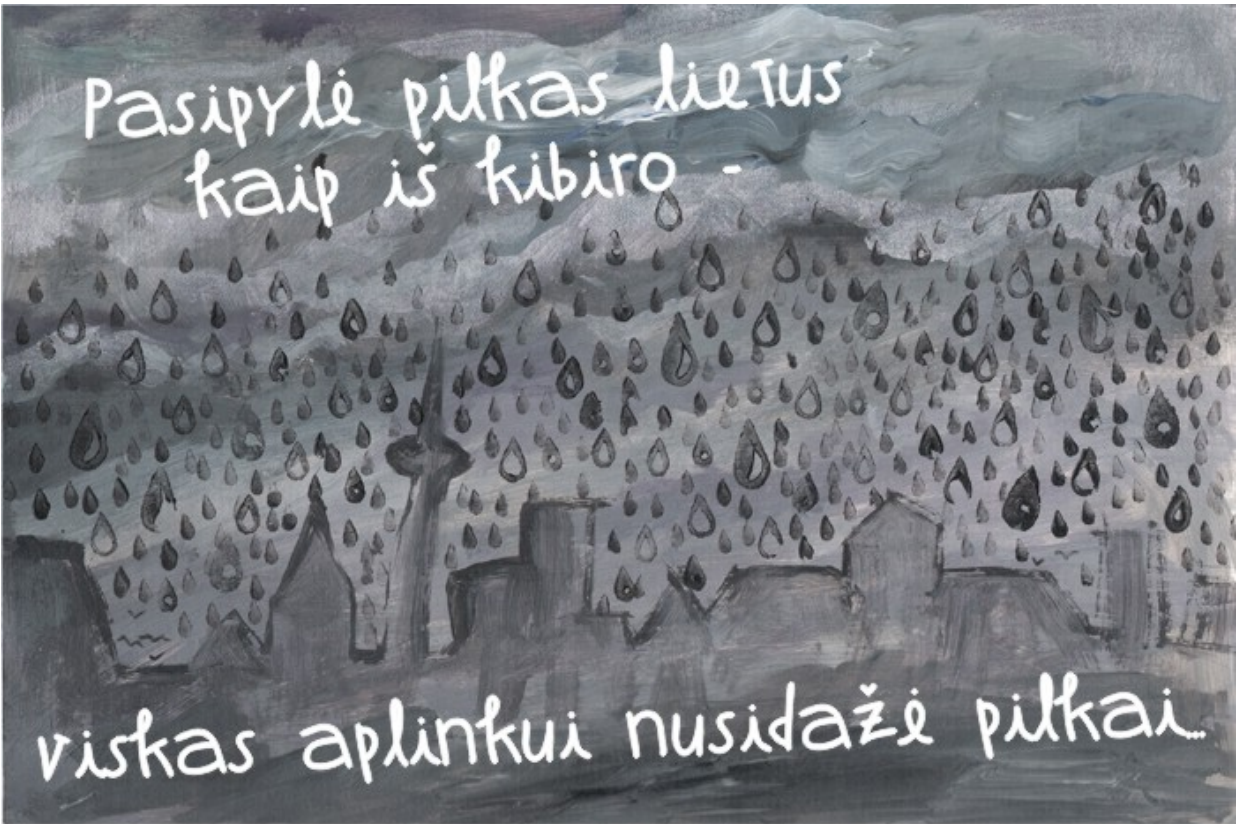 Pasipylė pilkas lietus
kaip iš kibiro -
viskas aplinkui nusidažė pilkai...